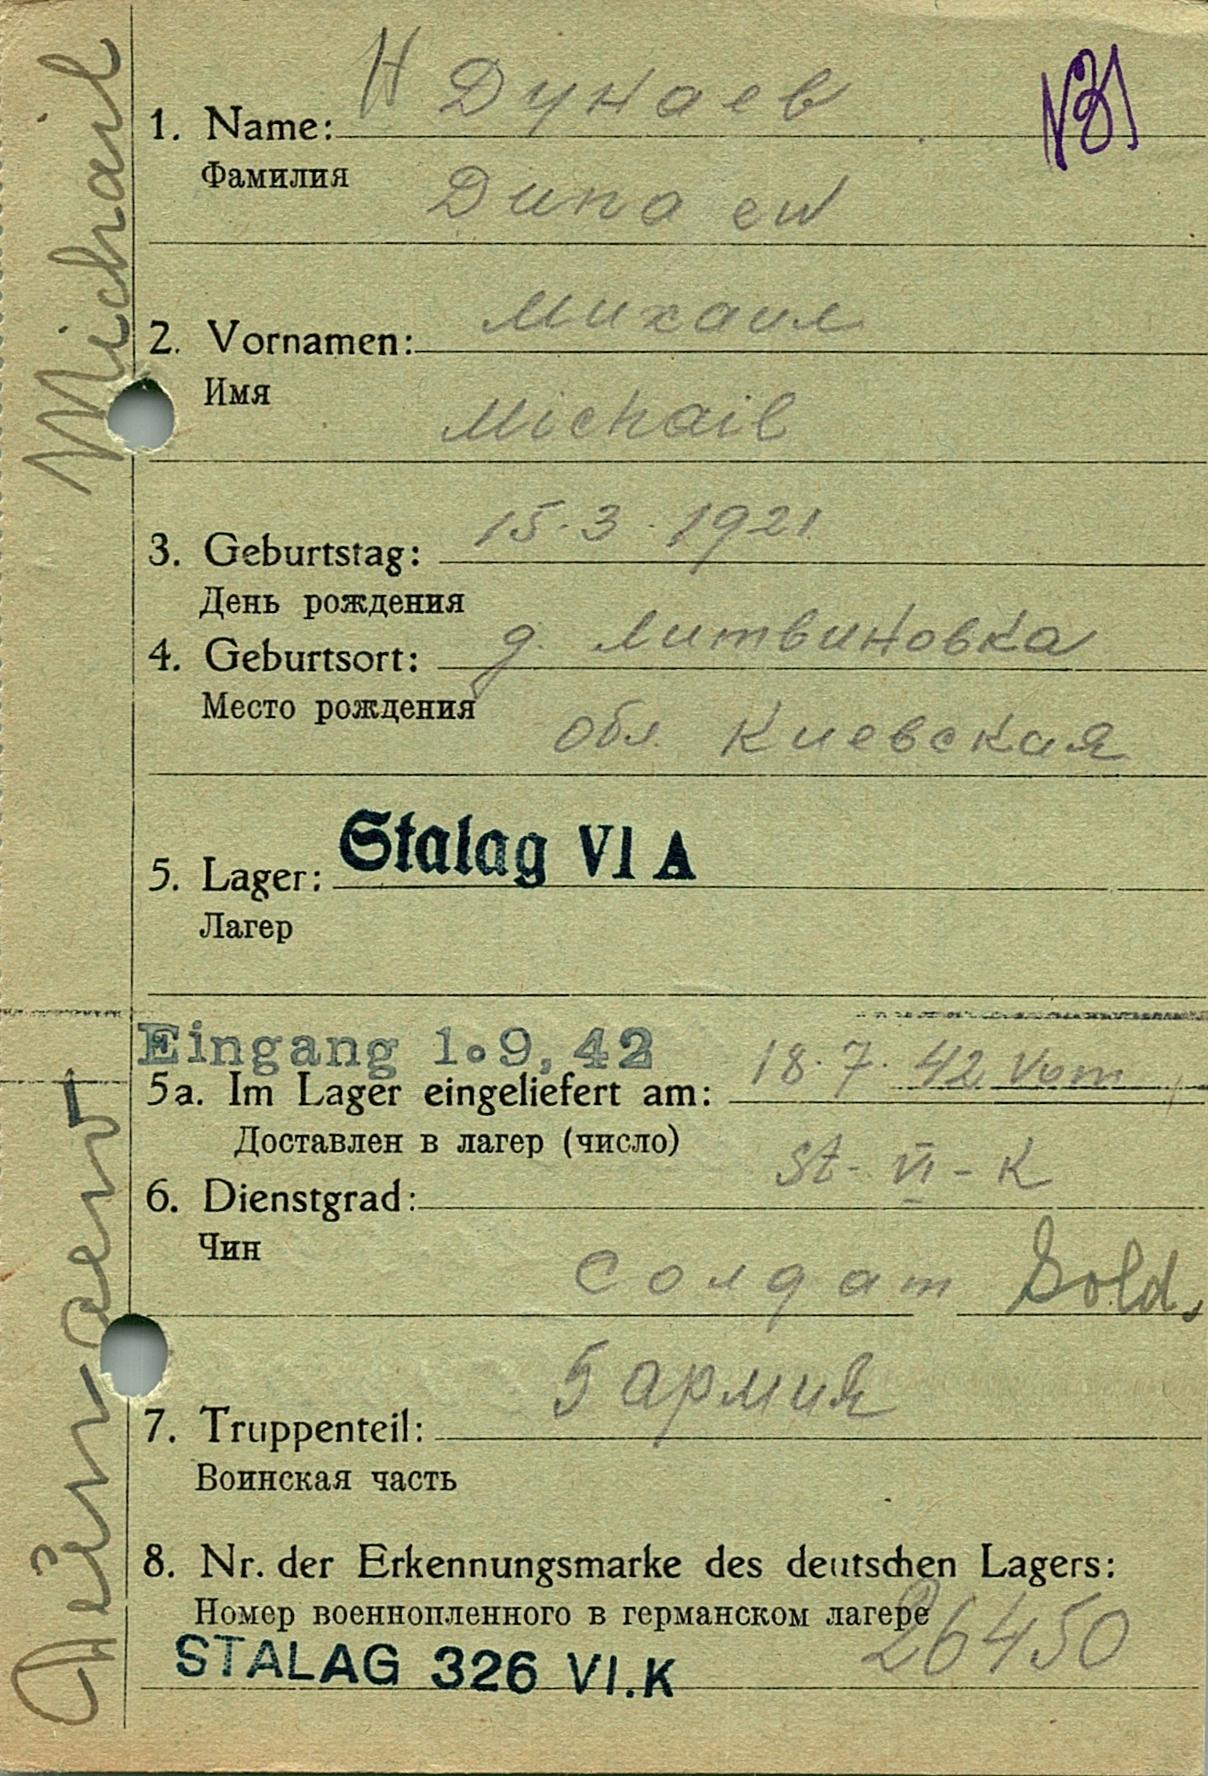 Н Дунаев
1. Name:
Фамилия
Dunaew
Михаил
2. Vornamen:
Имя
Michail
15.3.1921
3. Geburtstag:
День рождения
д. Литвиновка
4. Geburtsort:
Место рождения
обл. Киевская
Stalag VI A
5. Lager:
Лагер
Eingang 1.9.42
18.7.42 Vom
5a. Im Lager eingeliefert am:
Доставлен в лагер (число)
St-VI-K
6. Dienstgrad:
Чин
Солдат Sold.
5 армия
7. Truppenteil:
Воинская часть
8. Nr. der Erkennungsmarke des deutschen Lagers:
Номер военнопленного в германском лагере
26450
STALAG 326 VI.K
Michail